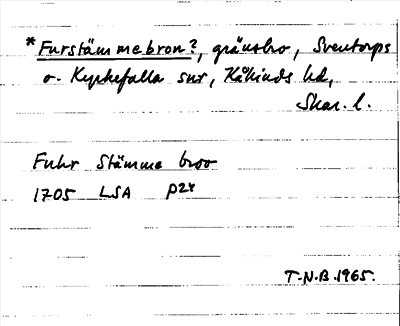 *Furstämmebron?, gränsbro, Sventorps
o. Kyrkefalla snr, Kåkinds hd,
Skar. l.
Fuhr Stämme broo
1705 LSA P24
T.N.B. 1965.